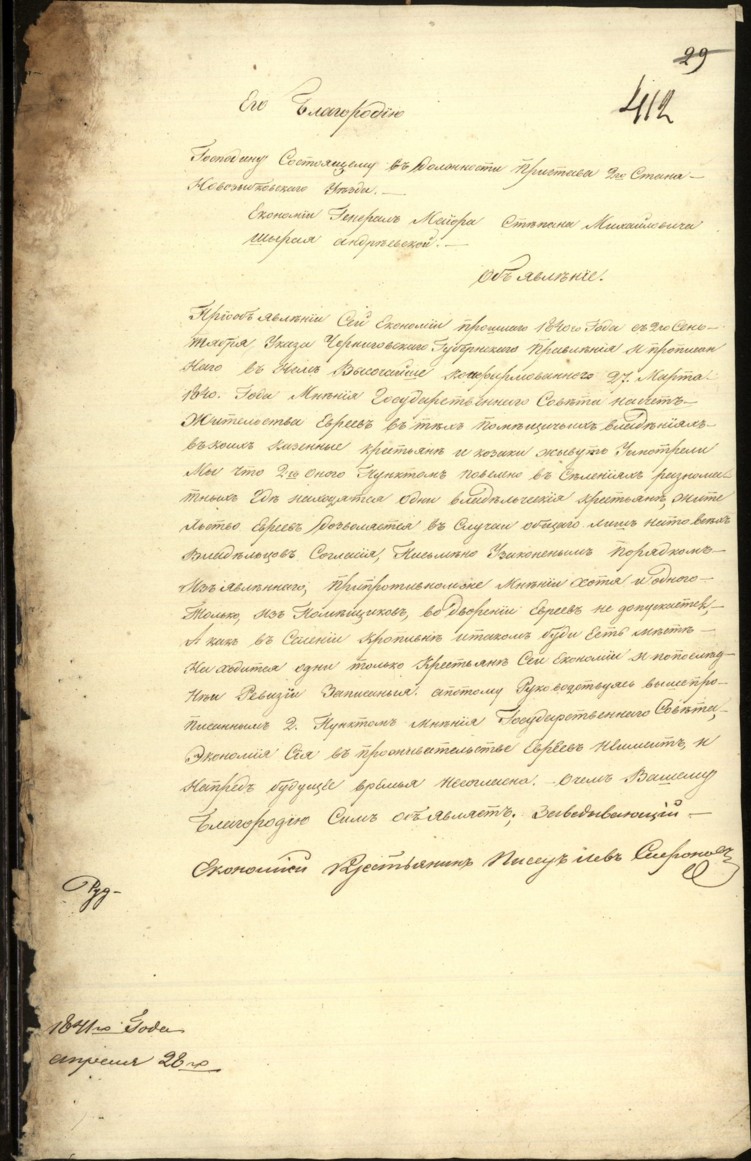 29
412
Его Благородію
Господину Состоящему въ Должности Пристава 2го Стана
Новозыбковскаго Уезда.
Економіи Генералъ Маіора Стѣпана Михайловича
Ширая Андрѣевской.
Объявлѣніе.
Приобъявлѣніи Сей Економіи прошлаго 1840го Года съ 2го Сен-
тября Указа Черниговского Губѣрнского Правлѣнія и прописан
наго въ Немъ Высочайше конфирмованного 27. Марта
1840. Года Мнѣнія Государственного Совѣта насчетъ
Жительства Евреевъ въ тѣхъ помѣщичьихъ владѣніяхъ
въ коихъ казенные крестьяне и козаки живутъ
Мы что 2го оного Пунктомъ повелно въ Сѣленіяхъ разномѣ
тныхъ Гдѣ находятся одни владѣльческія крестьянѣ, жите
льство Евреевъ Дозволяется въ Случаи общаго лишь на то всѣхъ
Владѣльцовъ Согласія, Письмѣно Узаконенымъ Порядкомъ
Изъявлѣннаго, припротивномже Мнѣніи хотя и одного
Только, изъ Помѣщиковъ, водвореніи Евреевъ не допускается,
А какъ въ Сѣленіи Кропивнѣ итакомъ буди Есть мѣстѣ
Находится одни только Крестьянѣ Сей Економіи и попослѣд-
нѣй Ревизіи Записаныя. апотому Руководствуясь вышепро-
писаннымъ 2. Пунктомъ Мнѣнія Государственного Совѣта,
Экономія Сія въ проживательстве Евреевъ Неимеитъ, и
Напредъ будущѣе врѣмья Несогласна. О чемъ Вашему
Благородію Симъ объявляетъ; Заведывающій
Економіей Крестьянинъ
Руд-
1841го Года
апреля 28го